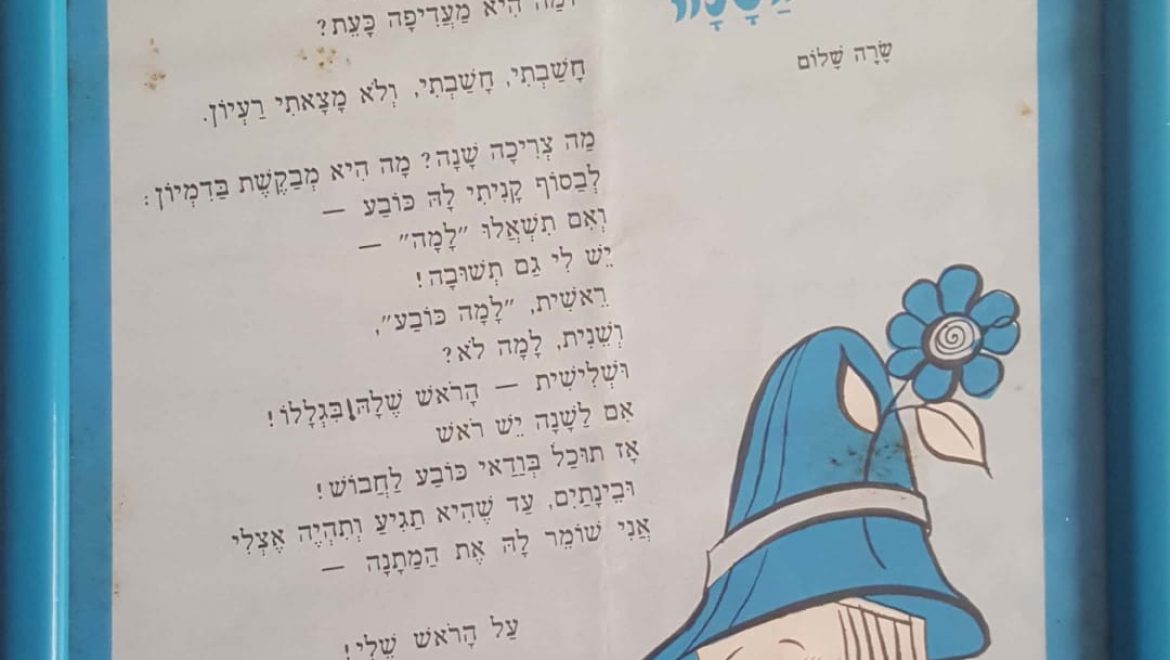 שָׂרָה שָׁלוֹם
וּמַה הִיא מַעֲדִיפָה כָּעֵת?
חָשַׁבְתִּי, חָשַׁבְתִּי, וְלֹא מָצָאתִי רַעְיוֹן.
מַה צְּרִיכָה שָׁנָה? מָה הִיא מְבַקֶּשֶׁת בַּדִּמְיוֹן:
לְבַסּוֹף קָנִיתִי לָהּ כּוֹבַע —
וְאִם תִּשְׁאֲלוּ ״לָמָה״ —
יֵשׁ לִי גַם תְּשׁוּבָה!
רֵאשִׁית, ״לָמָה כּוֹבַע״,
וְשֵׁנִית, לָמָה לֹא?
וּשְׁלִישִׁית — הָרֹאשׁ שֶׁלָּהּ בִּגְלָלוֹ!
אִם לַשָּׁנָה יֵשׁ רֹאשׁ
אָז תּוּכַל בְּוַדַּאי כּוֹבַע לַחֲבוֹשׁ!
וּבֵינָתַיִם, עַד שֶׁהִיא תַגִּיעַ וְתִהְיֶה אֶצְלִי
אֲנִי שׁוֹמֵר לָהּ אֶת הַמַּתָּנָה —
עַל הָרֹאשׁ שֶׁלִּי!